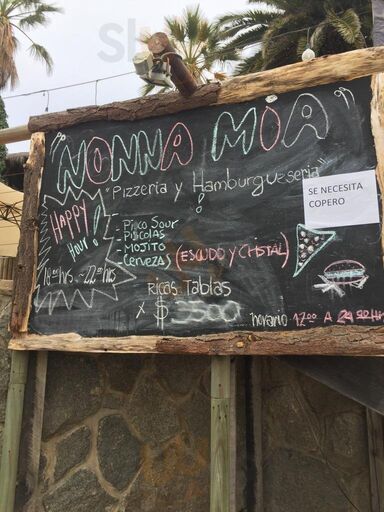 "NONNA MIA"
"Pizzeria y Hamburguesería"
!
HAPPY
Hour!
- Pisco Sour
- Piscolas
- Mojito
- Cervezas (ESCUDO y CRISTAL)
SE NECESITA
COPERO
18:00 hrs ~ 22:00 hrs
Ricas Tablas
x $ 3500
horario 12:00 A 24:00 Hrs